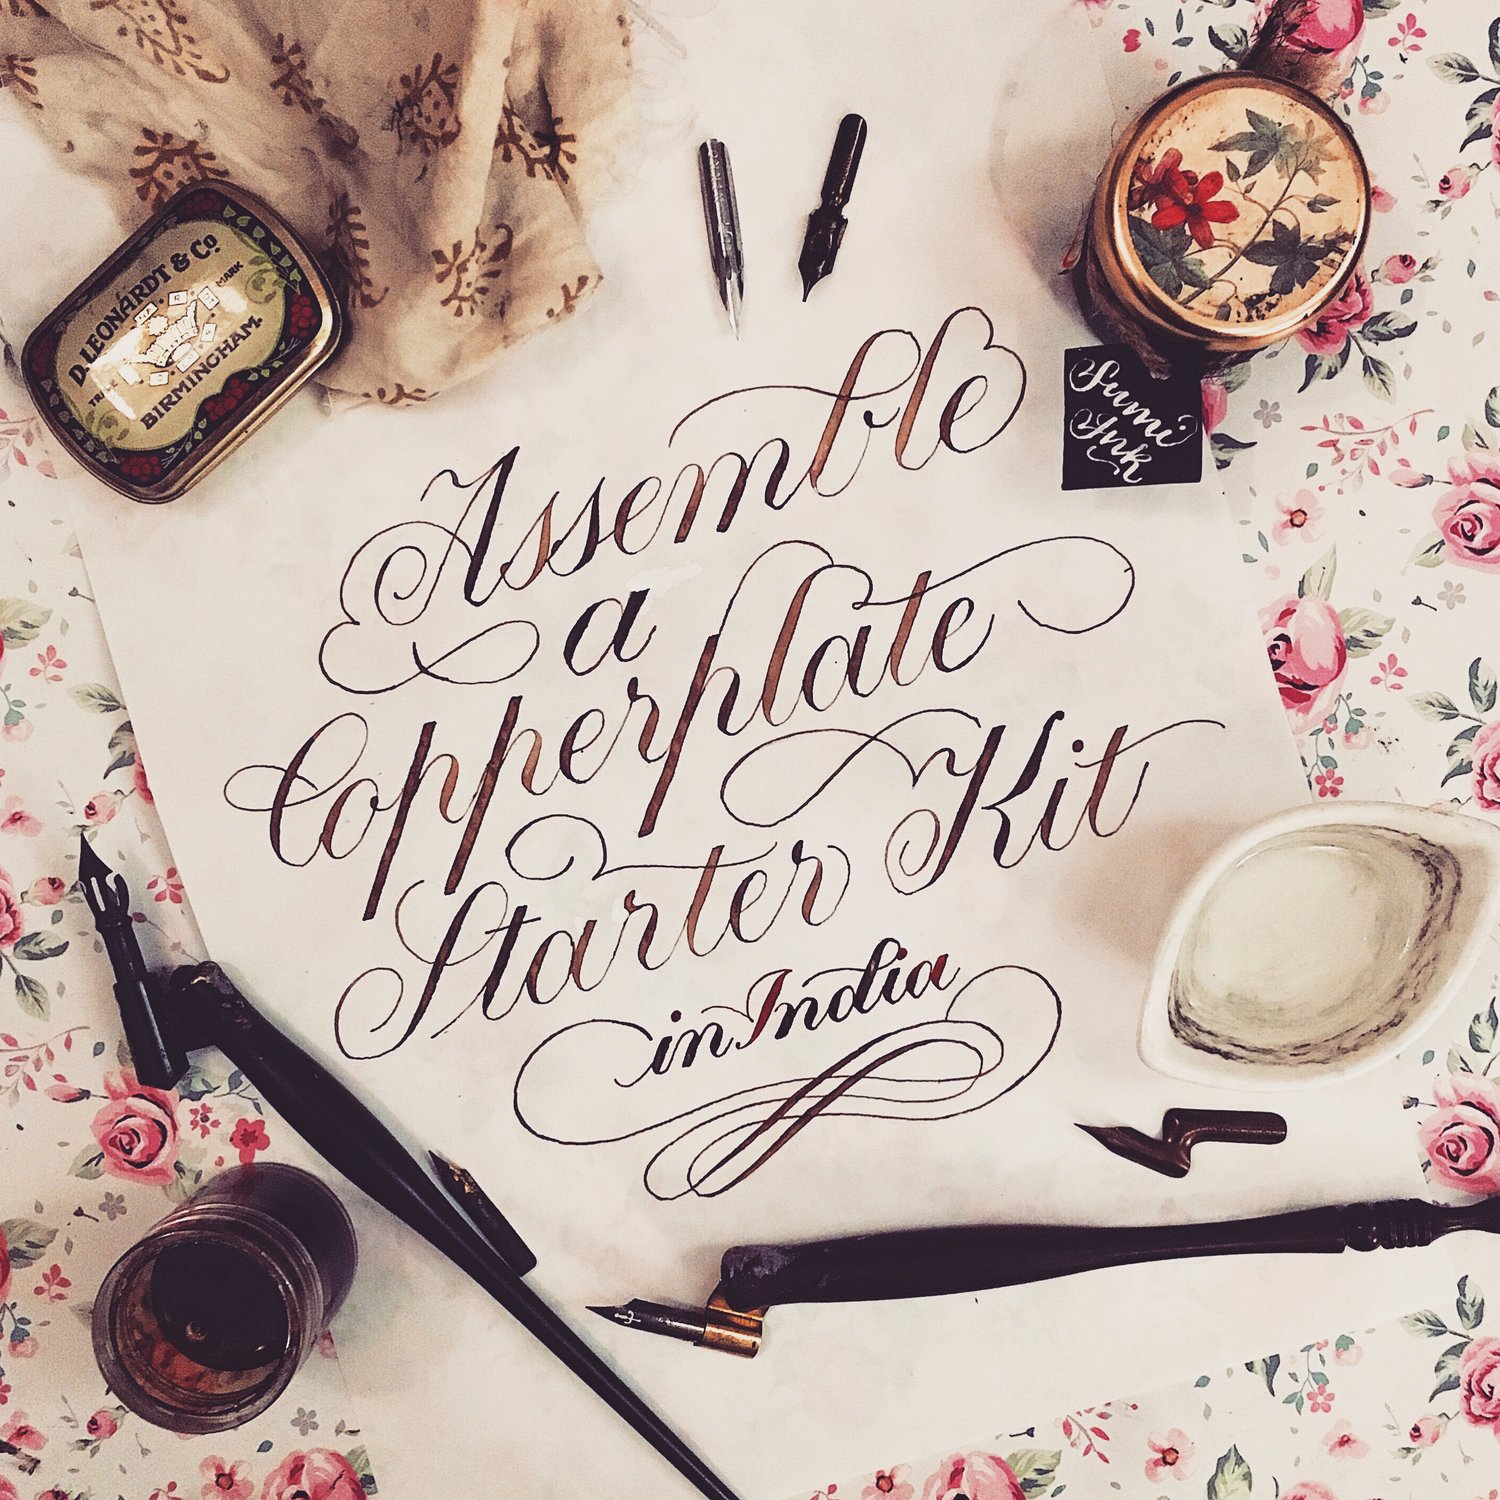 D. LEONARDT & Co.
TRADE MARK
BIRMINGHAM.
Sumi
Ink
Assemble
a
Copperplate
Starter Kit
in India